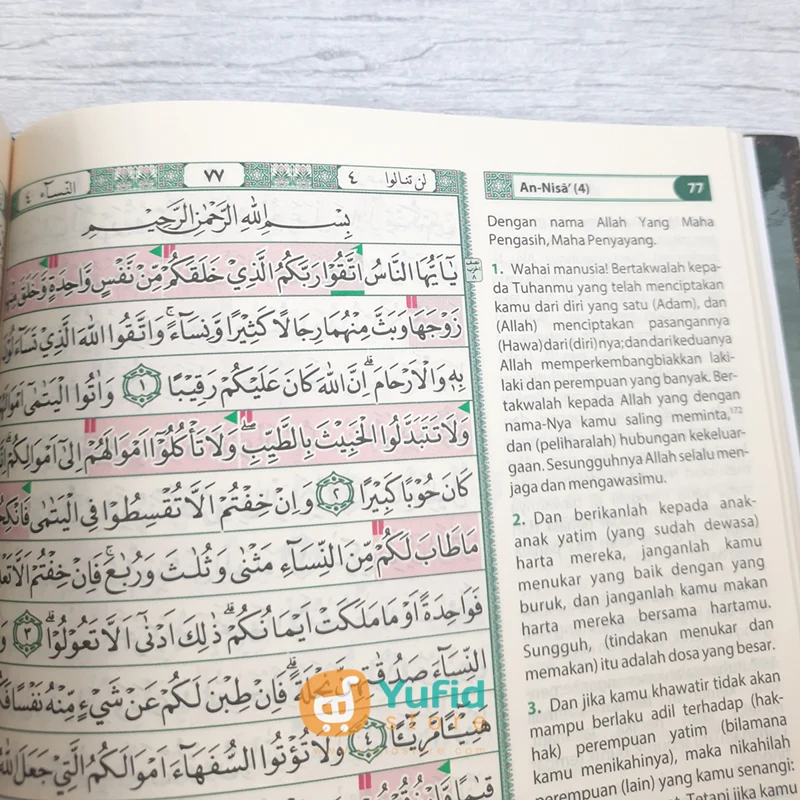 النسآء ٤
٧٧
لن تنالوا ٤
بِسْمِ اللهِ الرَّحْمٰنِ الرَّحِيْمِ
يٰٓاَيُّهَا النَّاسُ اتَّقُوْا رَبَّكُمُ الَّذِيْ خَلَقَكُمْ مِّنْ نَّفْسٍ وَّاحِدَةٍ وَّخَلَقَ مِنْهَا
زَوْجَهَا وَبَثَّ مِنْهُمَا رِجَالًا كَثِيْرًا وَّنِسَاۤءً ۚ وَاتَّقُوا اللّٰهَ الَّذِيْ تَسَاۤءَلُوْنَ
بِهٖ وَالْاَرْحَامَ ۗ اِنَّ اللّٰهَ كَانَ عَلَيْكُمْ رَقِيْبًا ١ وَاٰتُوا الْيَتٰمٰٓى اَمْوَالَهُمْ
وَلَا تَتَبَدَّلُوا الْخَبِيْثَ بِالطَّيِّبِ ۖ وَلَا تَأْكُلُوْٓا اَمْوَالَهُمْ اِلٰٓى اَمْوَالِكُمْ ۗ
كَانَ حُوْبًا كَبِيْرًا ٢ وَاِنْ خِفْتُمْ اَلَّا تُقْسِطُوْا فِى الْيَتٰمٰى فَانْكِحُوْا
مَا طَابَ لَكُمْ مِّنَ النِّسَاۤءِ مَثْنٰى وَثُلٰثَ وَرُبٰعَ ۚ فَاِنْ خِفْتُمْ اَلَّا
فَوَاحِدَةً اَوْ مَا مَلَكَتْ اَيْمَانُكُمْ ۗ ذٰلِكَ اَدْنٰٓى اَلَّا تَعُوْلُوْا ۗ ٣
النِّسَاۤءَ صَدُقٰتِهِنَّ نِحْلَةً ۗ فَاِنْ طِبْنَ لَكُمْ عَنْ شَيْءٍ مِّنْهُ نَفْسًا
هَنِيْۤـًٔا مَّرِيْۤـًٔا ٤ وَلَا تُؤْتُوا السُّفَهَاۤءَ اَمْوَالَكُمُ الَّتِيْ جَعَلَ اللّٰهُ
An-Nisā' (4) 77
Dengan nama Allah Yang Maha
Pengasih, Maha Penyayang.
1. Wahai manusia! Bertakwalah kepa-
da Tuhanmu yang telah menciptakan
kamu dari diri yang satu (Adam), dan
(Allah) menciptakan pasangannya
(Hawa) dari (diri)nya; dan dari keduanya
Allah memperkembangbiakkan laki-
laki dan perempuan yang banyak. Ber-
takwalah kepada Allah yang dengan
nama-Nya kamu saling meminta,172
dan (peliharalah) hubungan kekeluar-
gaan. Sesungguhnya Allah selalu men-
jaga dan mengawasimu.
2. Dan berikanlah kepada anak-
anak yatim (yang sudah dewasa)
harta mereka, janganlah kamu
menukar yang baik dengan yang
buruk, dan janganlah kamu makan
harta mereka bersama hartamu.
Sungguh, (tindakan menukar dan
memakan) itu adalah dosa yang besar.
3. Dan jika kamu khawatir tidak akan
mampu berlaku adil terhadap (hak-
hak) perempuan yatim (bilamana
kamu menikahinya), maka nikahilah
perempuan (lain) yang kamu senangi:
Tetapi jika kamu
Yufid
store